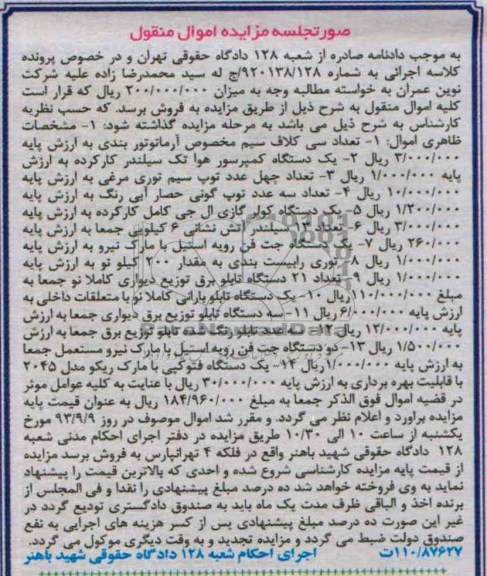 صورتجلسه مزایده اموال منقول
به موجب دادنامه صادره از شعبه ۱۲۸ دادگاه حقوقی تهران و در خصوص پرونده
کلاسه اجرائی به شماره ۹۲۰۱۳۸/۱۲۸/ج له سید محمدرضا زاده علیه شرکت
نوین عمران به خواسته مطالبه وجه به میزان ۲۰۰/۰۰۰/۰۰۰ ریال که قرار است
کلیه اموال منقول به شرح ذیل از طریق مزایده به فروش برسد. که حسب نظریه
کارشناس به شرح ذیل می باشد به مرحله مزایده گذاشته شود: ۱- مشخصات
ظاهری اموال: ۱- تعداد سی کلاف سیم مخصوص آرماتوتور بندی به ارزش پایه
۳/۰۰۰/۰۰۰ ریال ۲- یک دستگاه کمپرسور هوا تک سیلندر کارکرده به ارزش
پایه ۱/۰۰۰/۰۰۰ ریال ۳- تعداد چهل عدد توپ سیم توری مرغی به ارزش پایه
۱۰/۰۰۰/۰۰۰ ریال ۴- تعداد سه عدد توپ گونی حصار آبی رنگ به ارزش پایه
۱/۲۰۰/۰۰۰ ریال ۵- یک دستگاه کولر گازی ال جی کامل کارکرده به ارزش پایه
۳/۰۰۰/۰۰۰ ریال ۶- تعداد ۱۳ سیلندر آتش نشانی ۶ کیلویی جمعا به ارزش پایه
۲۶۰/۰۰۰ ریال ۷- یک دستگاه جت فن رویه استیل با مارک نیرو به ارزش پایه
۱/۰۰۰/۰۰۰ ریال ۸- توری رابیست بندی به مقدار ۲۰۰ کیلو نو به ارزش پایه
۱/۰۰۰/۰۰۰ ریال ۹- تعداد ۲۱ دستگاه تابلو برق توزیع دیواری کاملا نو جمعا به
مبلغ ۱۱۰/۰۰۰/۰۰۰ ریال ۱۰- یک دستگاه تابلو بارانی کاملا نو با متعلقات داخلی به
ارزش پایه ۶/۰۰۰/۰۰۰ ریال ۱۱- سه دستگاه تابلو توزیع برق دیواری جمعا به ارزش
پایه ۱۲/۰۰۰/۰۰۰ ریال ۱۲- عدد تابلو رنگ نشده تابلو توزیع برق جمعا به ارزش
۱/۵۰۰/۰۰۰ ریال ۱۳- دو دستگاه جت فن رویه استیل با مارک نیرو مستعمل جمعا
به ارزش پایه ۱/۰۰۰/۰۰۰ ریال ۱۴- یک دستگاه فتوکپی با مارک ریکو مدل ۲۰۴۵
با قابلیت بهره برداری به ارزش پایه ۳۰/۰۰۰/۰۰۰ ریال با عنایت به کلیه عوامل موثر
در قضیه اموال فوق الذکر جمعا به مبلغ ۱۸۴/۹۶۰/۰۰۰ ریال به عنوان قیمت پایه
مزایده براورد و اعلام نظر می گردد. و مقرر شد اموال موصوف در روز ۹۳/۹/۹ مورخ
یکشنبه از ساعت ۱۰ الی ۱۰/۳۰ طریق مزایده در دفتر اجرای احکام مدنی شعبه
۱۲۸ دادگاه حقوقی شهید باهنر واقع در فلکه ۴ تهرانپارس به فروش برسد مزایده
از قیمت پایه مزایده کارشناسی شروع شده و احدی که بالاترین قیمت را پیشنهاد
نماید به وی فروخته خواهد شد ده درصد مبلغ پیشنهادی را نقدا و فی المجلس از
برنده اخذ و الباقی ظرف مدت یک ماه باید به صندوق دادگستری تودیع گردد در
غیر این صورت ده درصد مبلغ پیشنهادی پس از کسر هزینه های اجرایی به نفع
صندوق دولت ضبط می گردد و مزایده تجدید و به وقت دیگری موکول می گردد.
۱۱۰/۸۷۶۲۷ت اجرای احکام شعبه ۱۲۸ دادگاه حقوقی شهید باهنر